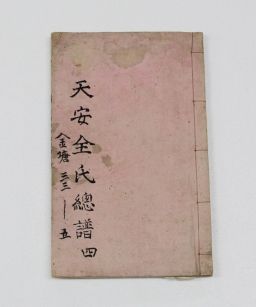 天安全氏總譜四
金塘三三｜五